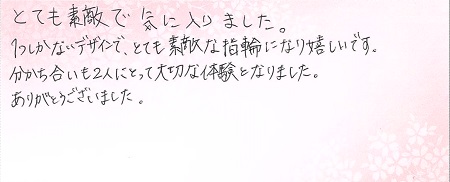 とても素敵で気に入りました。
1つしかないデザインで、とても素敵な指輪になり嬉しいです。
分かち合いも2人にとって大切な体験となりました。
ありがとうございました。